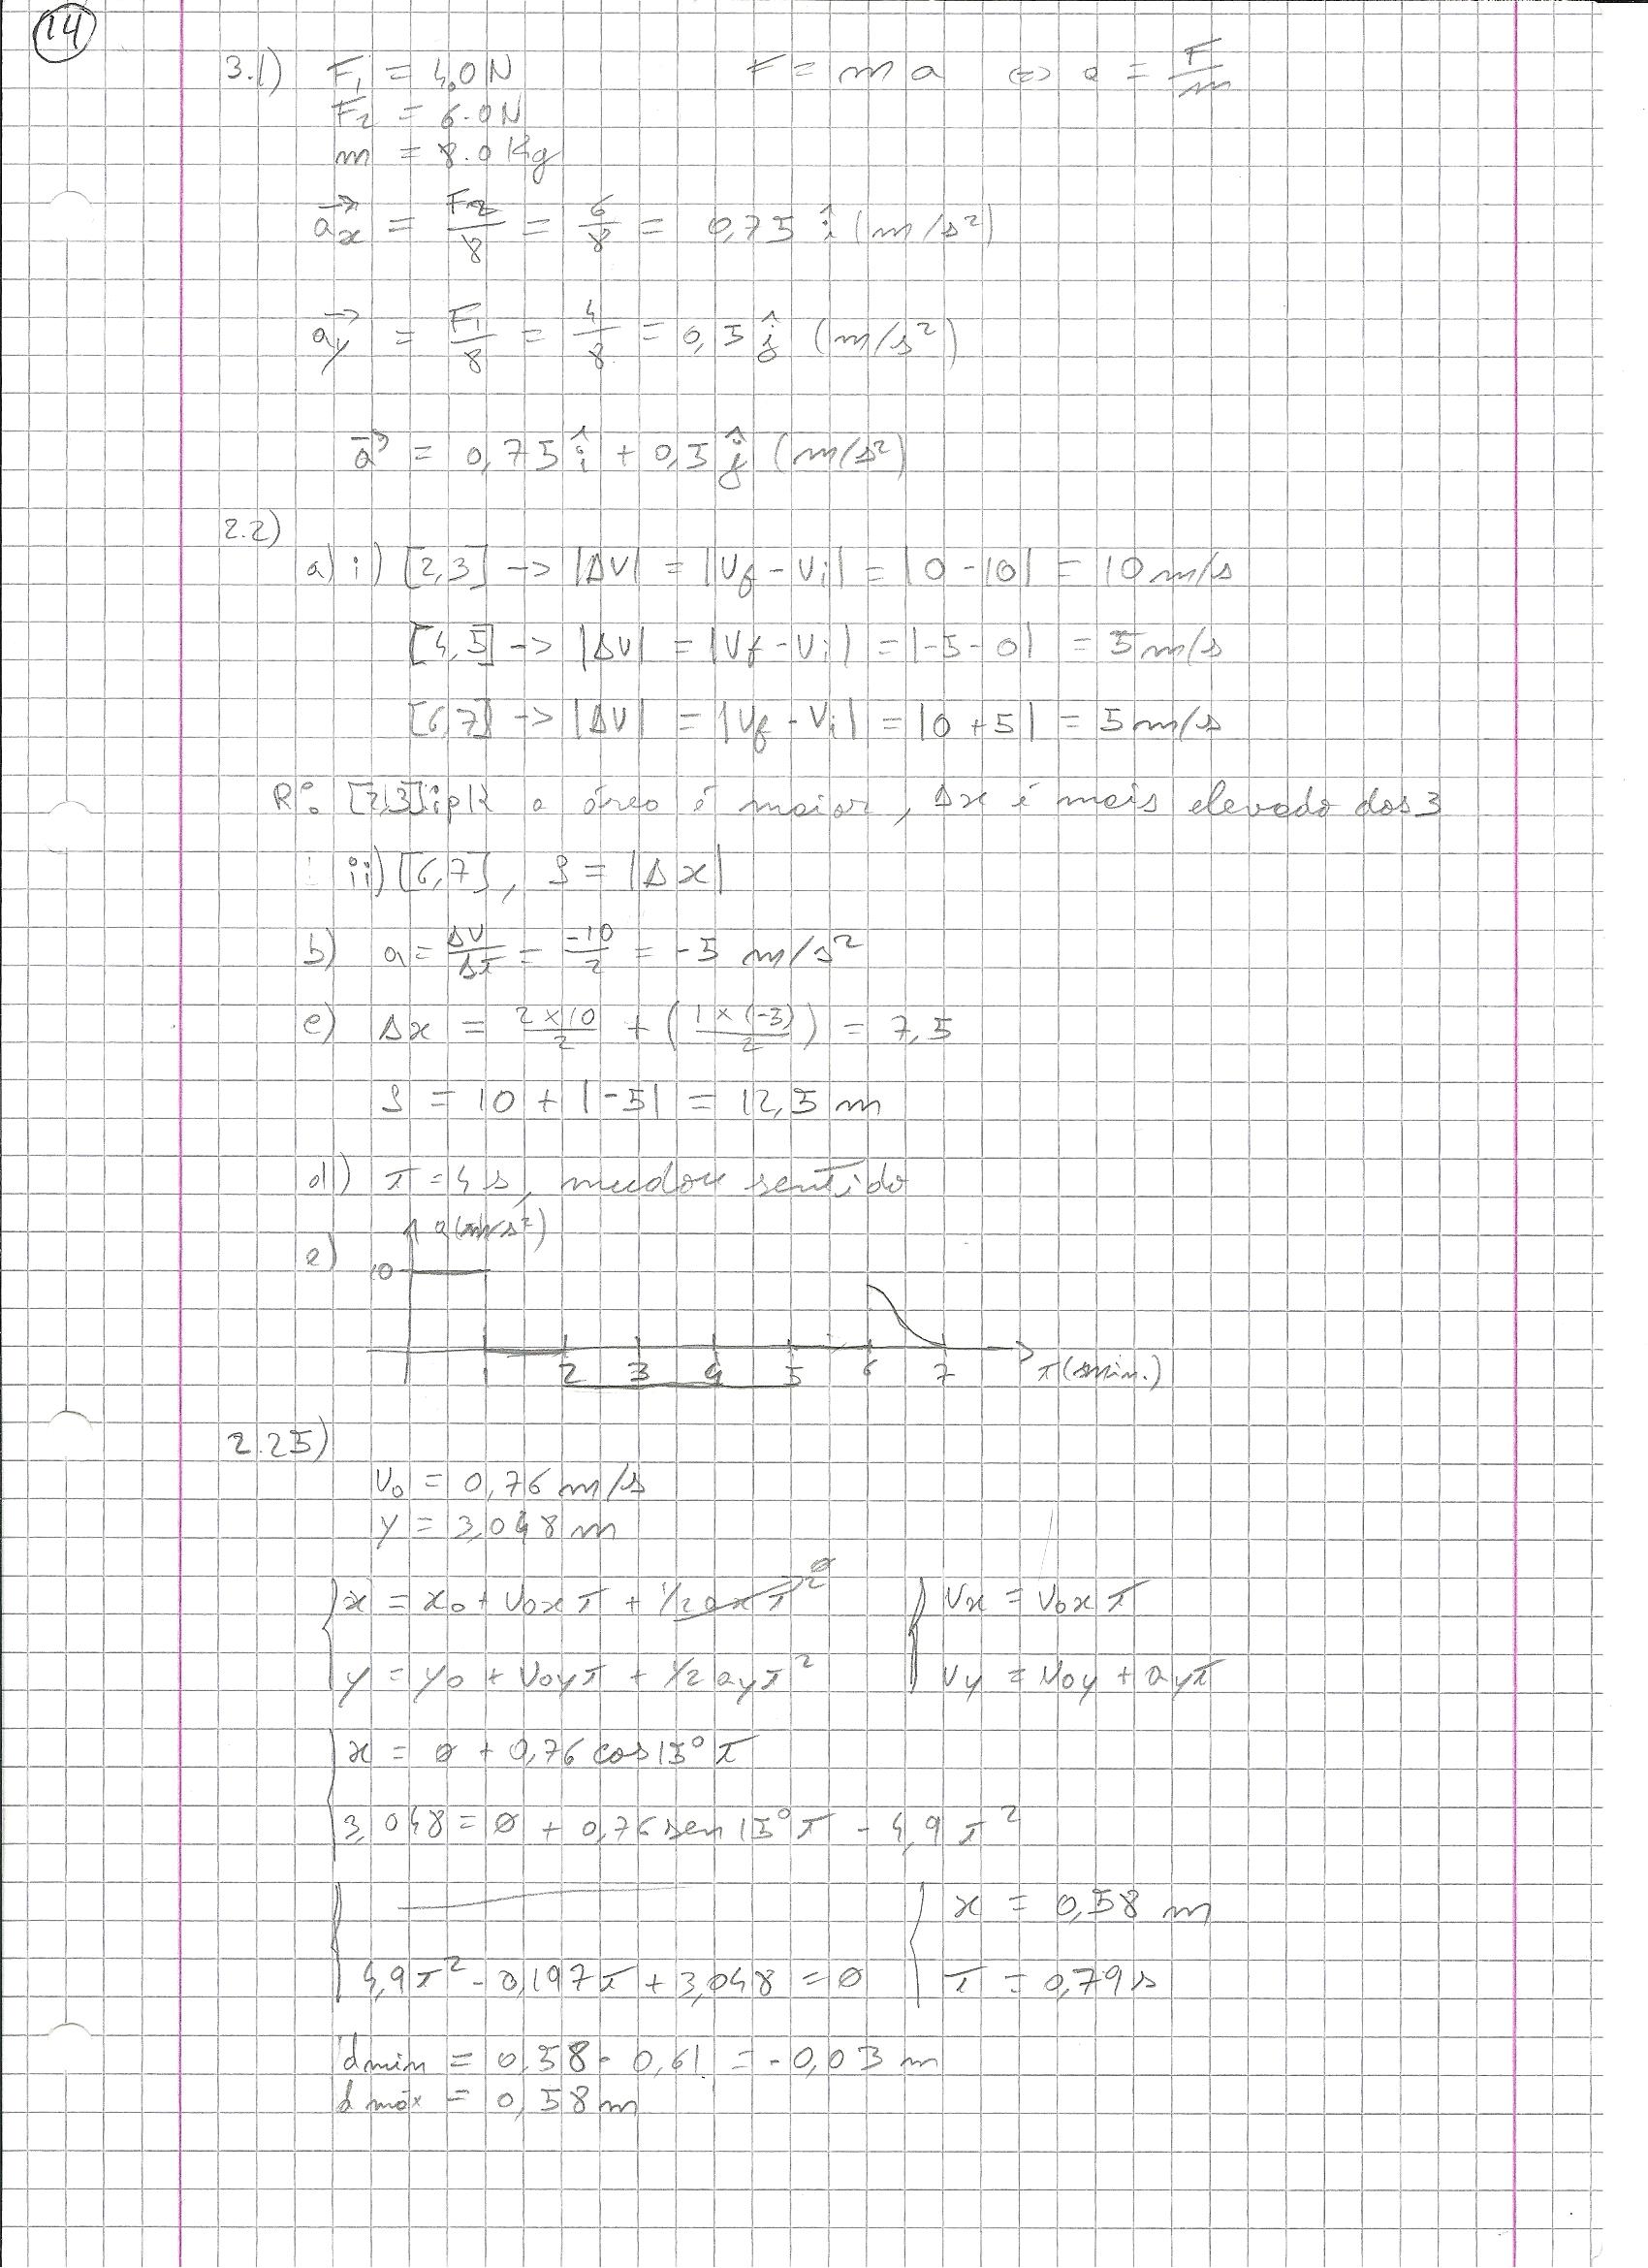 14
3.1) F₁ = 4,0 N F = m a ⇔ a = F/m
F₂ = 6.0 N
m = 8.0 Kg
a⃗x = F₂/8 = 6/8 = 0,75 î (m/s²)
a⃗y = F₁/8 = 4/8 = 0,5 ĵ (m/s²)
a⃗ = 0,75 î + 0,5 ĵ (m/s²)
2.2)
a) i) [2,3] -> |ΔV| = |Vf - Vi| = |0 - 10| = 10 m/s
[4,5] -> |ΔV| = |Vf - Vi| = |-5 - 0| = 5 m/s
[6,7] -> |ΔV| = |Vf - Vi| = |0 + 5| = 5 m/s
R: [2,3] a área é maior, Δx é mais elevado dos 3
ii) [6,7], S = |Δx|
b) a = ΔV/Δt = -10/2 = -5 m/s²
c) Δx = 2 × 10/2 + (1 × (-5)/2) = 7,5
S = 10 + |-5| = 12,5 m
d) t = 4 s, mudou sentido
e) a (m/s²)
10
1 2 3 4 5 6 7 t (min.)
2.25)
V₀ = 0,76 m/s
y = 3,048 m
x = x₀ + V₀x t + 1/2 ax t² 0 Vx = V₀x t
y = y₀ + V₀y t + 1/2 ay t² Vy = V₀y + ay t
x = 0 + 0,76 cos 15° t
3,048 = 0 + 0,76 sen 15° t - 4,9 t²
x = 0,58 m
4,9 t² - 0,197 t + 3,048 = 0 t = 0,79 s
dmin = 0,58 - 0,61 = -0,03 m
dmáx = 0,58 m